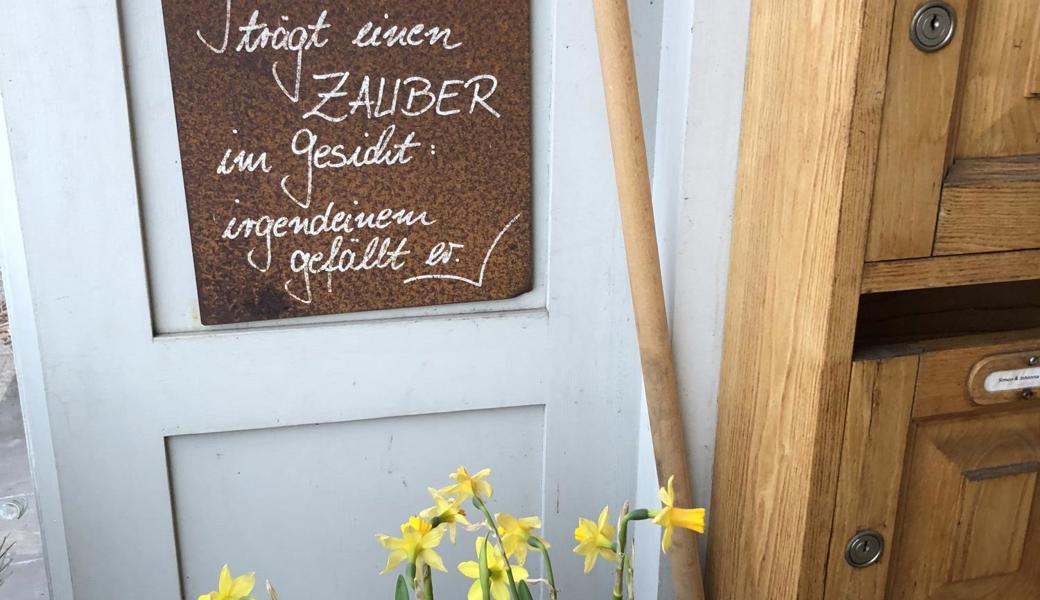 trägt einen
ZAUBER
im Gesicht:
irgendeinem
gefällt er.
Simon & Johanna